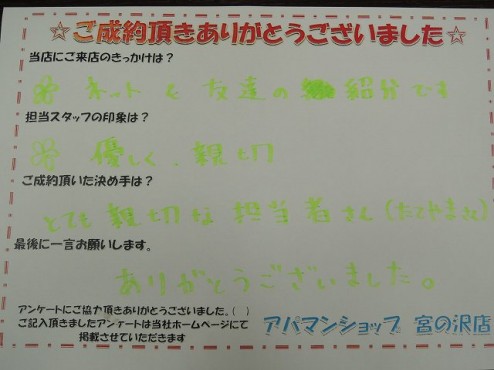 ☆ご成約頂きありがとうございました☆
当店にご来店のきっかけは？
ネットと友達の紹介です
担当スタッフの印象は？
優しく、親切
ご成約頂いた決め手は？
とても親切な担当者さん(たてやまさん)
最後に一言お願いします。
ありがとうございました。
アンケートにご協力頂きありがとうございました。( )
ご記入頂きましたアンケートは当社ホームページにて
掲載させていただきます
アパマンショップ 宮の沢店